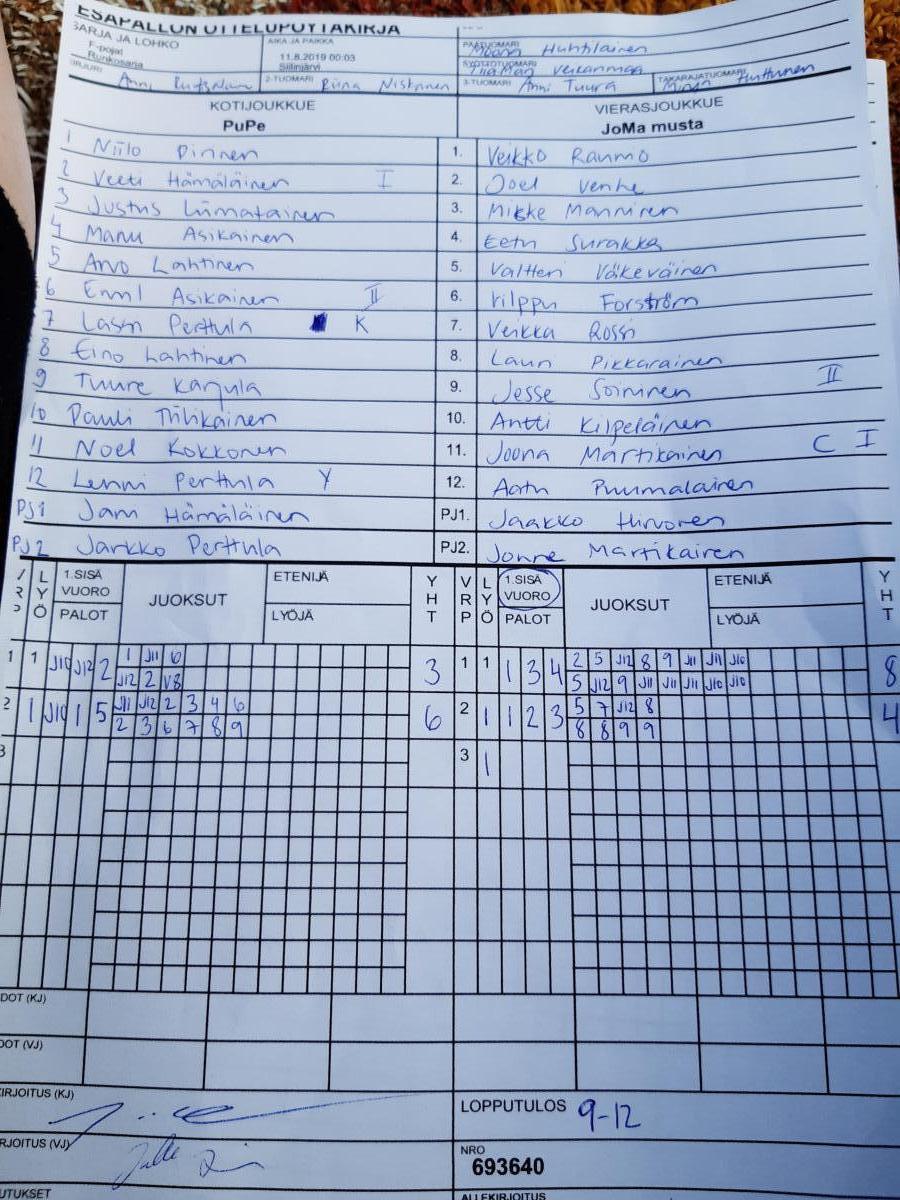 ESÄPALLON OTTELUPÖYTÄKIRJA
SARJA JA LOHKO
F-pojat
Runkosarja
AIKA JA PAIKKA
11.8.2019 00:03
Siilinjärvi
PÄÄTUOMARI Moona Huhtilainen
SYÖTTÖTUOMARI
KIRJURI Anni
2-TUOMARI Riina Niskanen
3-TUOMARI Anni Tuura
TAKARAJATUOMARI Minja Huttunen
KOTIJOUKKUE VIERASJOUKKUE
PuPe JoMa musta
1 Niilo Pirinen 1. Veikko Raumo
2 Veeti Hämäläinen I 2. Joel Venhe
3 Justus Liimatainen 3. Mikke Manninen
4 Manu Asikainen 4. Eetu Surakka
5 Arvo Lahtinen 5. Valtteri Väkeväinen
6 Emil Asikainen II 6. Vilppu Forström
7 Lassi Perttula K 7. Veikka Rossi
8 Eino Lahtinen 8. Lauri Pikkarainen
9 Tuure Karjula 9. Jesse Soininen II
10 Pauli Tiilikainen 10. Antti Kilpeläinen
11 Noel Kokkonen 11. Joona Martikainen C I
12 Lenni Perttula Y 12. Aatu Puumalainen
PJ1 Jani Hämäläinen PJ1. Jaakko Hirvonen
PJ2 Jarkko Perttula PJ2. Jonne Martikainen
VRP LYÖ 1.SISÄ VUORO PALOT JUOKSUT ETENIJÄ LYÖJÄ YHT VRP LYÖ 1.SISÄ VUORO PALOT JUOKSUT ETENIJÄ LYÖJÄ YHT
1 1 J10 J12 2 1 J11 6 3 1 1 1 3 4 2 5 J12 8 9 J11 J11 J10 8
J12 2 V8 5 J12 9 J11 J11 J11 J10 J10
2 1 J10 1 5 J11 J12 2 3 4 6 6 2 1 1 2 3 5 7 J12 8 4
2 3 6 7 8 9 8 8 9 9
3 3 1
DOT (KJ)
DOT (VJ)
KIRJOITUS (KJ)
LOPPUTULOS 9-12
KIRJOITUS (VJ)
NRO
693640
UTUKSET ALLEKIRJOITUS